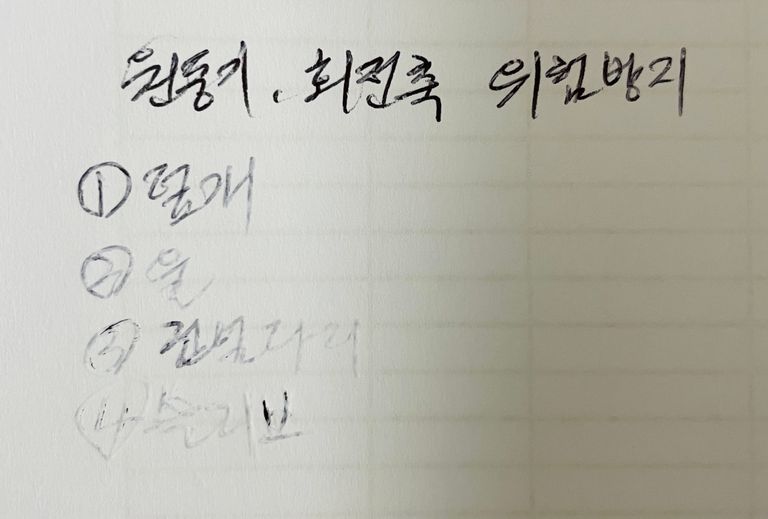 원동기. 회전축 위험방지
① 덮개
② 울
③ 건널다리
④ 슬리브